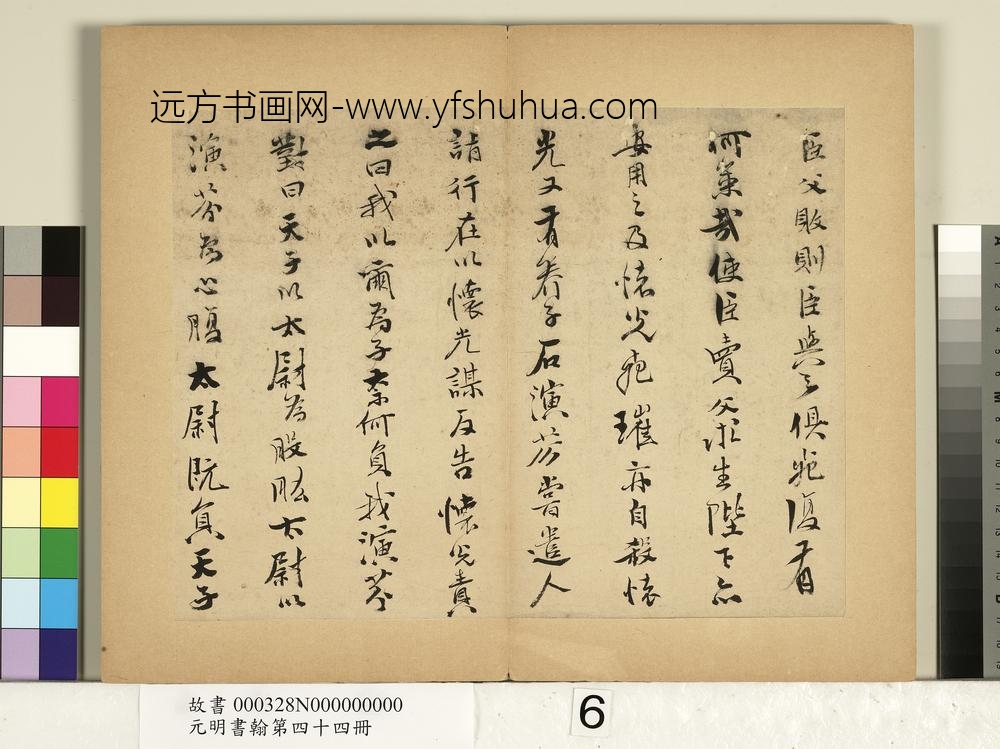 远方书画网-www.yfshuhua.com
臣父敗則臣與之俱死復有
何策哉使臣賣父求生陛下亦
安用之及懷光死璀亦自殺懷
光又有養子石演芬嘗遣人
詣行在以懷光謀反告懷光責
之曰我以爾為子柰何負我演芬
對曰天子以太尉為股肱太尉以
演芬為心腹太尉既負天子
故書 000328N000000000
元明書翰第四十四冊
6